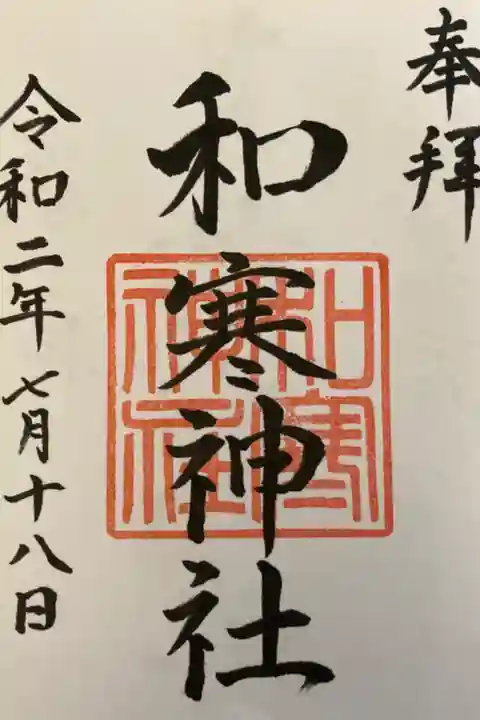 奉拝
和寒神社
和寒
神社
令和二年七月十八日